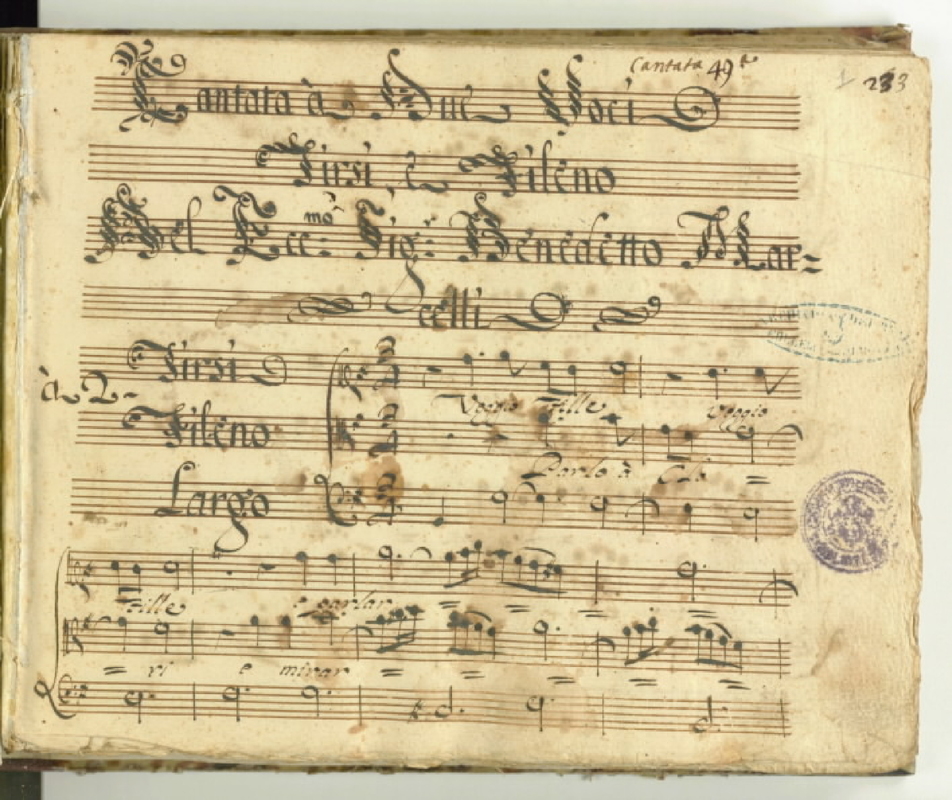 Cantata 49ª
1 233
Cantata à Due Voci
Tirsi, e Fileno
Del Ecc:mo Sigr: Benedetto Mar=
celli
à 2.
Tirsi
Veggio Fille Veggio
Fileno
Parlo à Clo =
Largo
Fille e parlar = = =
= ri e mirar = = = =